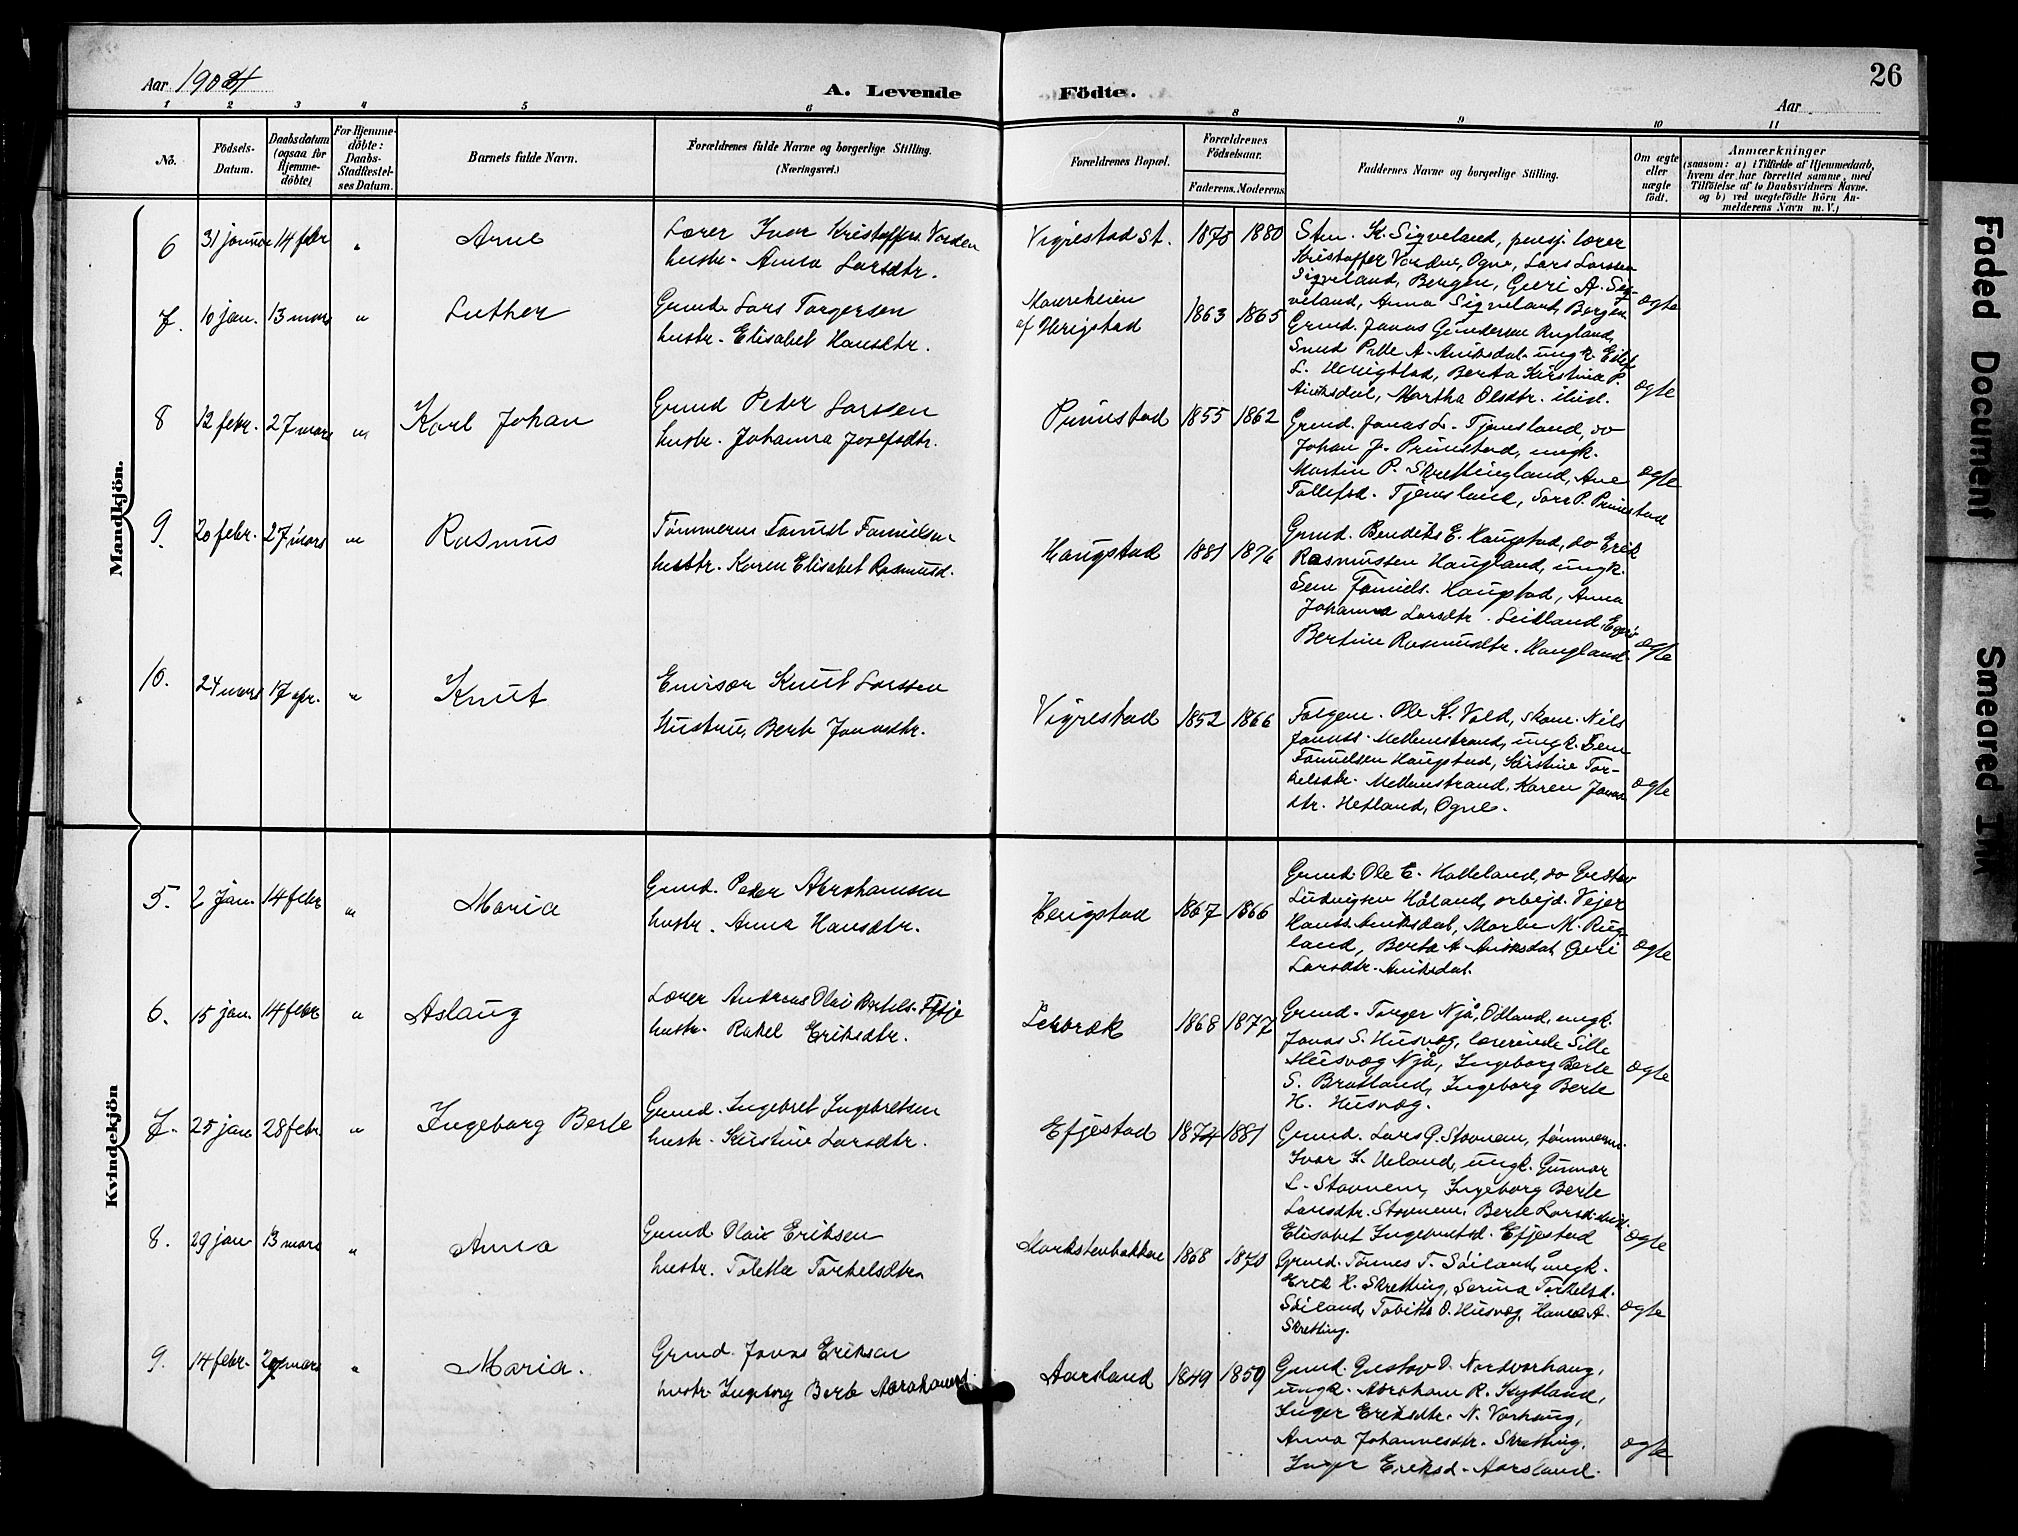 Aar 1904
A. Levende
Födte.
Aar
26
1 2 3 4 5 6 8 9 10 11
Nö.
Födsels-Datum.
Daabsdatum (ogsaa for Hjemme-döbte)
For Hjemme-döbte: Daabs-Stadfestel-ses Datum.
Barnets fulde Navn.
Forældrenes fulde Navne og borgerlige Stilling.
(Næringsvei.)
Forældrenes Bopæl.
Forældrenes Födselsaar.
Faderens. Moderens.
Faddernes Navne og borgerlige Stilling.
Om ægte eller uægte födt.
Anmærkninger
(saasom: a) i Tilfælde af Hjemmedaab,
hvem der har forrettet samme, med
Tilföielse af to Daabsvidners Navne.
og b) ved uægtefödte Börn An-
melderens Navn m. V.)
Mandkjön.
6 31 januar 14 febr " Arne
Lærer Ivar Kristoffers. Vorden
hustr. Anna Larsdtr.
Vigrestad St. 1875 1880
Sten. K. Sigveland, pensj. lærer
Kristoffer Vorden, Ogne, Lars Larsen
Sigveland, Bergen, Guri A. Sig-
veland, Anna Sigveland, Bergen
ægte
7. 10 jan. 13 mars " Luther
Grmd. Lars Torgersen
hustr. Elisabet Hansdtr.
Maureheien
af Herigstad
1863 1865
Grmd. Jonas Gundersen Rugland,
Smed Pelle A. Aniksdal, ungk. Eilef
L. Herigstad, Berta Kirstina P.
Aniksdal, Martha Olsdtr. ibid.
ægte
8 12 febr. 27 mars " Karl Johan
Grmd Peder Larsen
hustr. Johanna Josefsdtr.
Prinestad 1855 1862
Grmd. Jonas L. Tjensland, do
Johan J. Prinestad, ungk.
Martin P. Skrettingland, Ane
Tollefsd. Tjensland, Sara P. Prinestad
ægte
9. 20 febr. 27 mars " Rasmus
Tømmerm Tønnes Tønnesen
hustr. Karen Elisabet Rasmusd.
Haugstad 1881 1876
Grmd. Bendiks E. Haugstad, do Erik
Rasmussen Haugland, ungk.
Sem Haugstad, Anna
Johanna Larsdtr.
Bertine Rasmusdtr. Haugland.
ægte
10. 24 mars 17 apr. " Knut
Emisær Knut Larsen
Hustru, Berte Jonasdtr.
Vigrestad 1852 1866
Ole K. Vold, skom. Nils
Jonass. Mellemstrand, ungk. Sem
Haugstad, Kirstine Tor-
kelsdtr. Mellemstrand, Karen Jonas
dtr. Hetland, Ogne.
ægte
Kvindekjön
5. 2 Jan. 14 febr " Maria
Grmd. Peder Abrahamsen
hustr. Anna Hansdtr.
Herigstad 1867 1866
Grmd. Ole E. Halleland, do Gustav
Ludvigsen Håland, arbejd. Vejer
Hans. Aniksdal, Marte M. Rug-
land, Berta A. Aniksdal, Guri
Larsdtr. Aniksdal.
ægte
6. 15 jan. 14 febr " Aslaug
Lærer Andreas Olai Bertels.
hustr. Rakel Eriksdtr.
1868 1877
Grmd. Torger Njå, Ødland, ungk.
Jonas S. Husvæg, lærerinde Sille
Husvæg Njå, Ingeborg Berte
S. Bratland, Ingeborg Berte
H. Husvæg.
ægte
7. 25 jan 28 febr. " Ingeborg Berte
Grmd. Ingebret Ingebretsen
hustr. Kirstine Larsdtr.
Efjestad 1874 1881
Grmd. Lars G. Stavnem, tømmerm.
Ivar I. Ueland, ungk. Gunnar
L. Stavnem, Ingeborg Berte
Larsdtr. Stavnem, Berte Larsd. ibid.
Elisabet Ingebretsd. Efjestad
ægte
8. 29 jan 13 mars " Anna
Grmd Olai Eriksen
hustr. Tolette Torkelsdtr.
Markstenbakken 1868 1870
Grmd. Tønnes T. Söiland, ungk.
Erik H. Skretting, Serina Torkelsd.
Söiland, Tobitta O. Husvæg, Hanna A.
Skretting.
ægte
9. 14 febr. mars " Maria.
Grmd. Jonas Eriksen
hustr. Ingeborg Berte Abrahamsd.
Aarsland 1849 1859
Grmd. Gustav O. Nordvarhaug,
ungk. Abraham R. Kydland,
Inger Eriksdtr. N. Varhaug,
Anna Johannesdtr. Skretting,
Inger Eriksd. Aarsland.
ægte
Faded Document
Smeared Ink